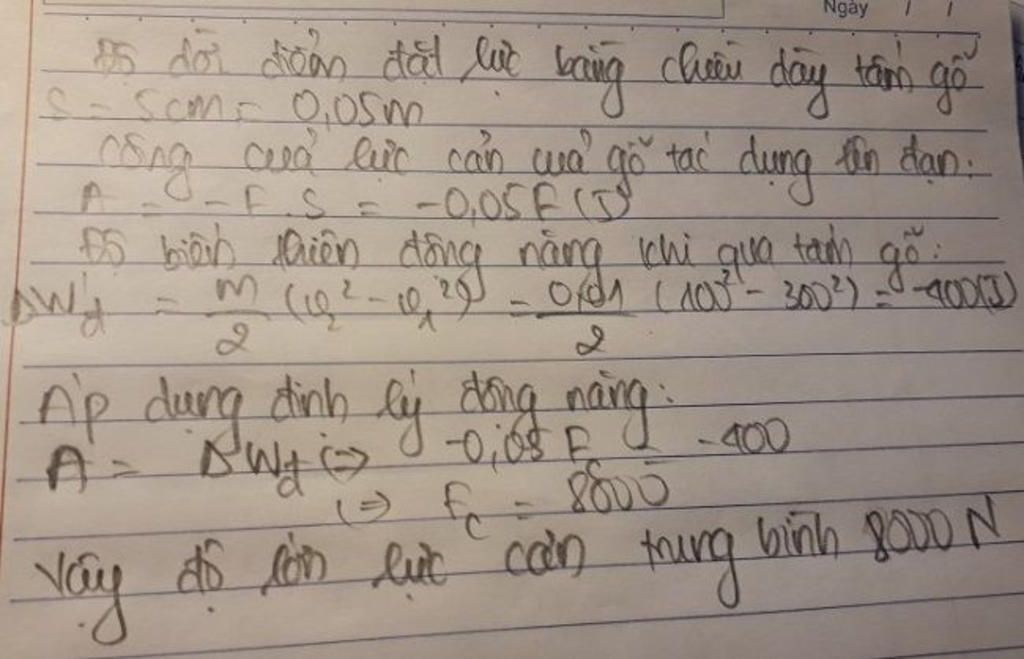 Ngày / /
Độ dời điểm đặt lực bằng chiều dày tấm gỗ
S = 5cm = 0,05m
công cuả lực cản cuả gỗ tác dụng lên đạn:
A = -F.S = -0,05F (J)
Độ biến thiên động năng khi qua tấm gỗ:
ΔWđ = m/2 (v₂² - v₁²) = 0,01/2 (100² - 300²) = -400(J)
Áp dụng định lý động năng:
A = ΔWđ (=> -0,05 F = -400
(=> Fc = 8000
Vậy độ lớn lực cản trung bình 8000 N